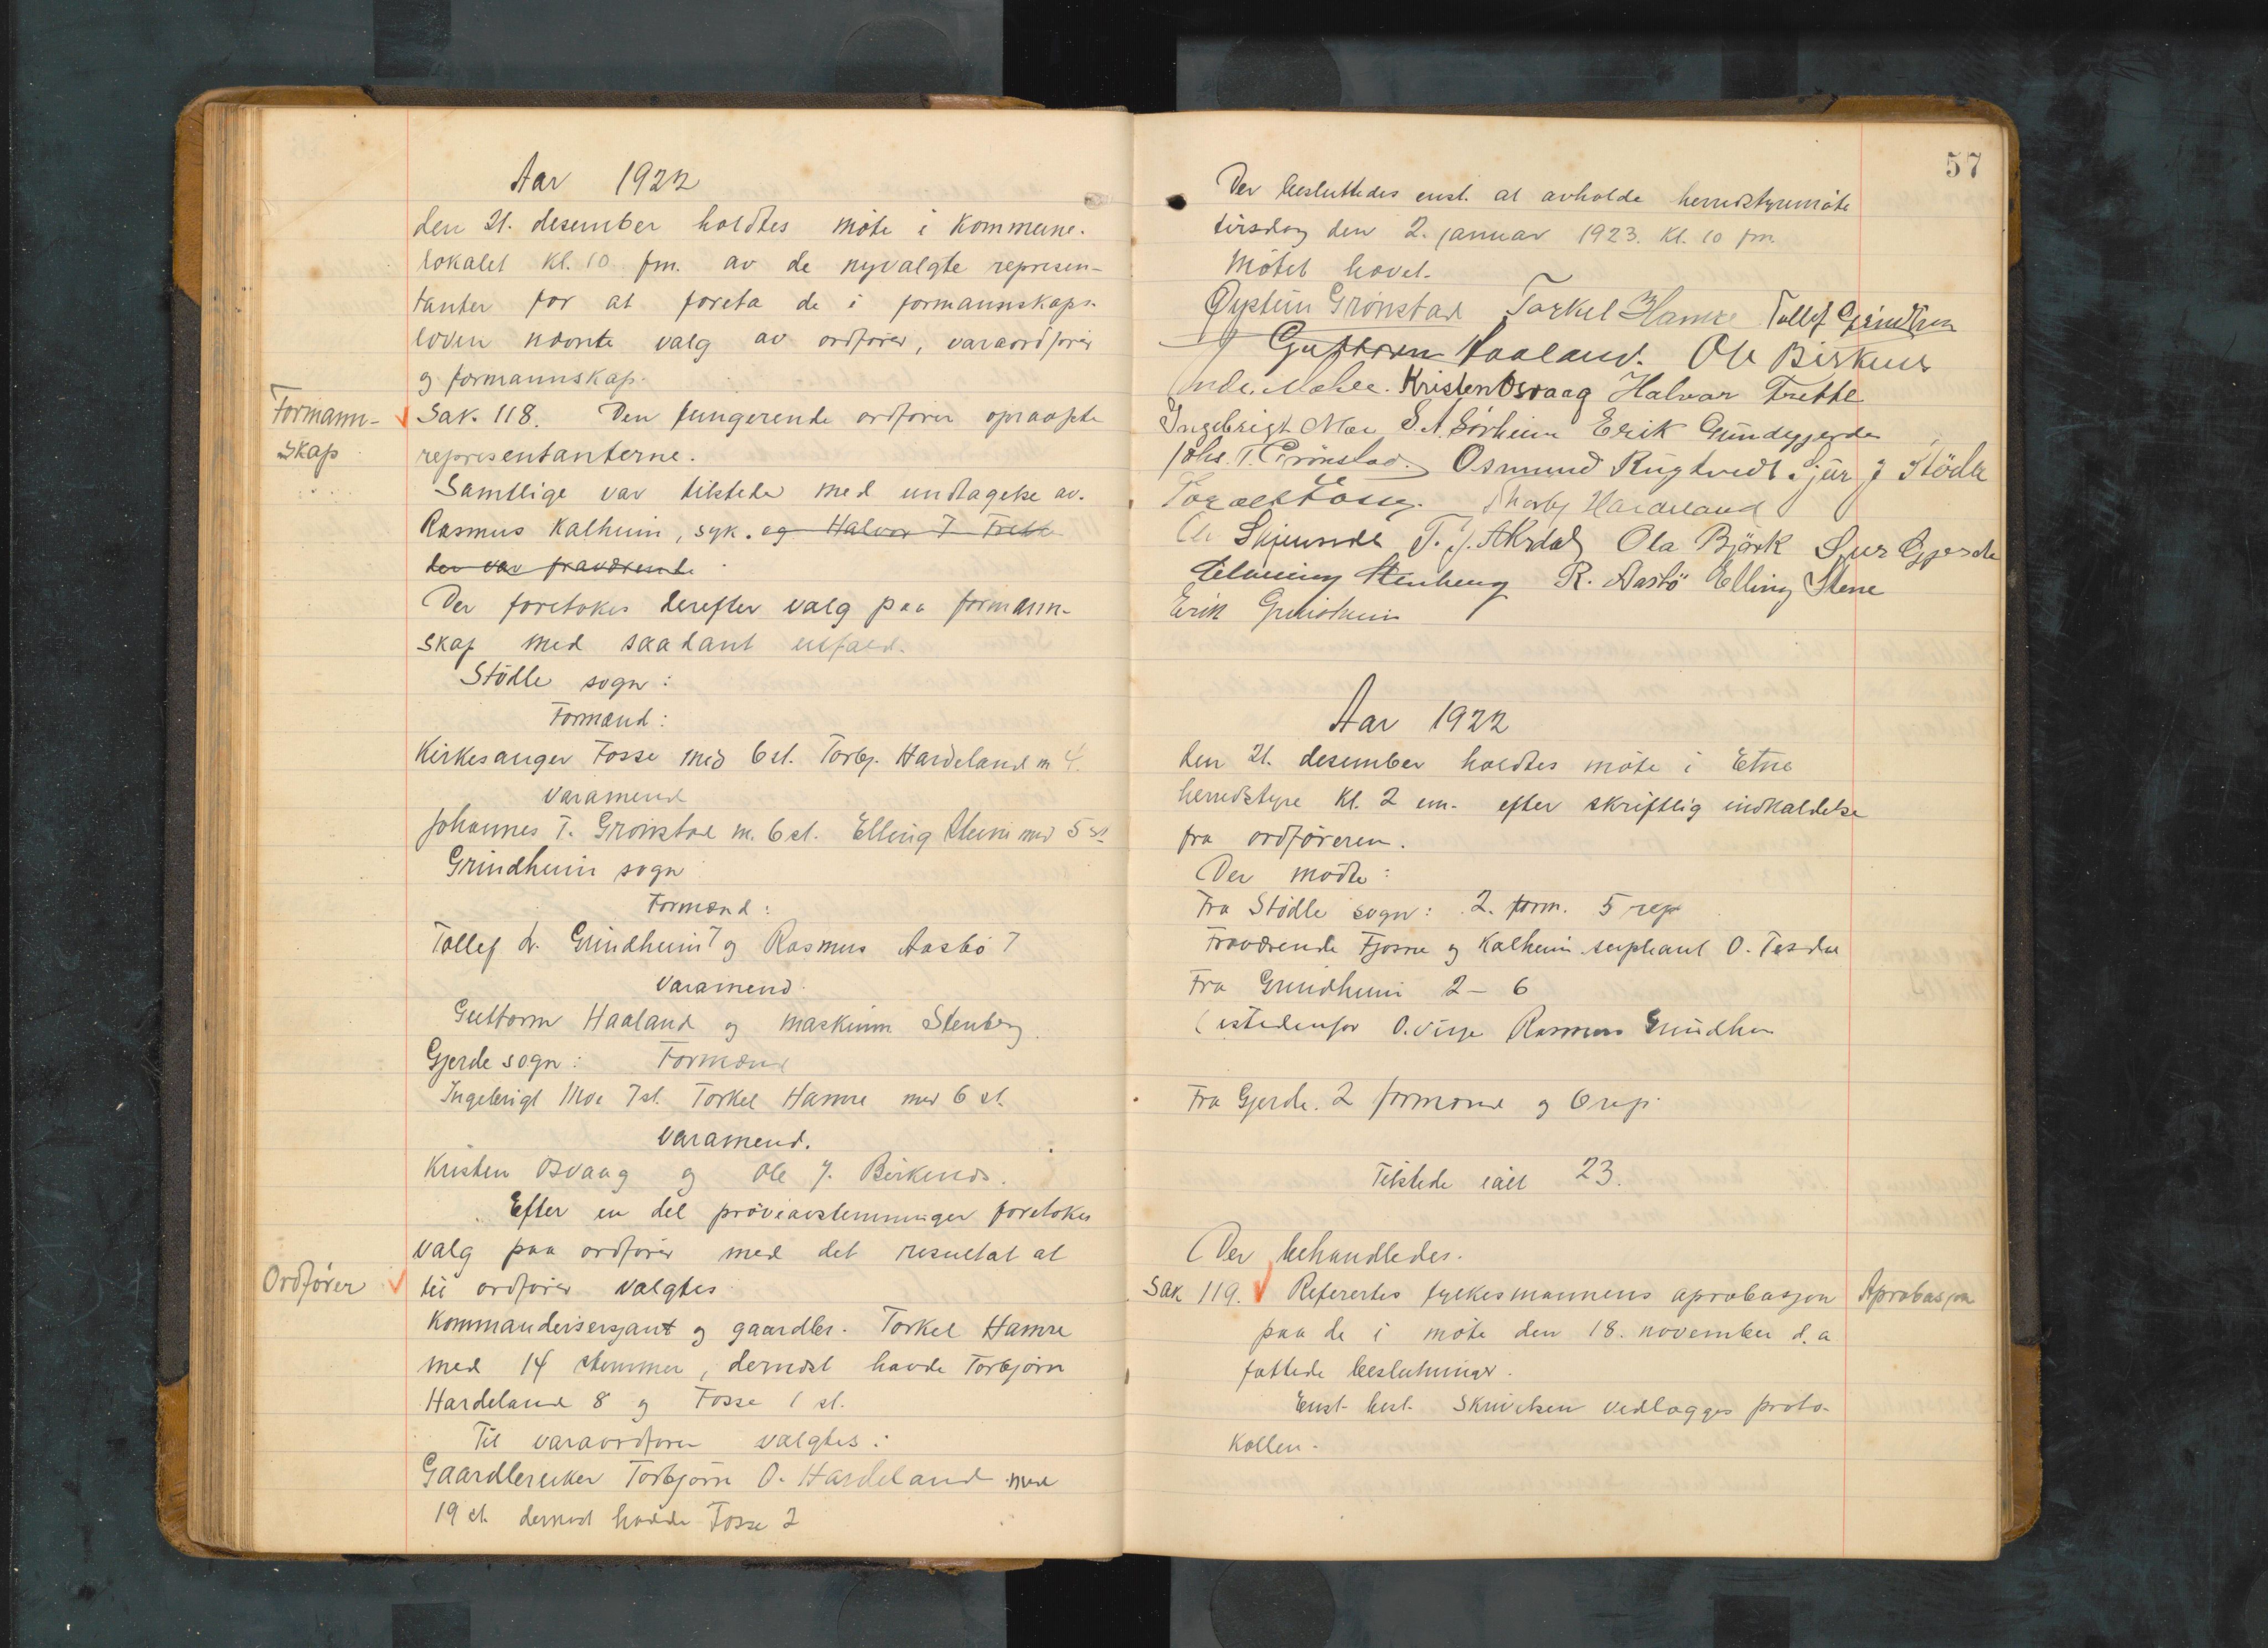 Aar 1922
den 21. desember holdtes møte i Kommune-
lokalet kl. 10 fm. av de nyvalgte represen-
tanter for at foreta de i formannskaps-
loven nævnte valg av ordfører, varaordfører
og formannskap.
Formann-
skap
Sak. 118. Den fungerende ordfører opraapte
representanterne.
Samtlige var tilstede med undtagelse av.
Rasmus Kalheim, syk. og Halvor T Frette
der var fraværende
Der foretokes derefter valg paa formann-
skap med saadant utfald.
Stödle sogn:
Formænd:
Kirkesanger Fosse med 6 st. Torbj. Hardeland m 4.
Varamend
Johannes T. Grönstad m. 6 st. Elling Steini med 5 st
Grindheim sogn
Formænd:
Tollef L. Grindheim 7 og Rasmus Aasbö 7
Varamend.
Guttorm Haaland og maskinm Stenberg.
Gjerde sogn: Formænd
Ingebrigt Moe 7 st. Torkel Hamre med 6 st.
Varamend.
Kristen Osvaag og Ole J. Birkenes.
Efter en del pröveavstemninger foretokes
valg paa ordförer med det resultat at
Ordfører
til ordförer valgtes
Kommandersersjant og gaardbr. Torkel Hamre
med 14 stemmer, dernæst havde Torbjörn
Hardeland 8 og Fosse 1 st.
Til varaordförer valgtes:
Gaardbruker Torbjörn O. Hardeland med
19 st. dernæst hadde Fosse 2
57
Der besluttedes enst. at avholde herredstyremöte
tirsdag den 2. januar 1923. Kl. 10 fm.
Mötet hævet.
Øystein Grönstad Torkel Hamre Tollef Grindheim
Guttorm Haaland. Ole Birkenes
Kristen Osvaag Halvor Frette
Ingebrigt Moe S. A. Sörheim Erik Gundegjerde
Johs. T. Grönstad. Osmund Rugtvedt. Sjur J Stödle
Torbj Hardeland
T. J. Akrdal Ola Björk Sjur Gjerde
Henning Stenberg R. Aasbö Elling Stene
Erik Grindheim
Aar 1922
den 21. desember holdtes möte i Etne
herredstyre Kl. 2 em. efter skriftlig indkaldelse
fra ordföreren.
Der mödte:
Fra Stödle sogn: 2. form. 5 rep
Fraværende Fjösne og Kalheim supleant O. Tesdal
Fra Grindheim 2 - 6
(istedenfor O. Vinje Rasmus Grindheim
Fra Gjerde. 2 formænd og 6 rep.
Tilstede ialt 23.
Der behandledes.
Sak 119. Referertes fylkesmannens aprobasjon
Aprobasjon
paa de i möte den 18. november d.a
fattede beslutninger.
Enst. besl. Skrivelsen vedlægges proto-
kollen.